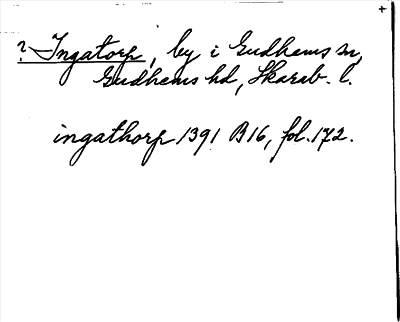 +
? Ingatorp, by i Gudhems sn,
Gudhems hd, Skarab. l.
ingathorp 1391 B16, fol. 172.